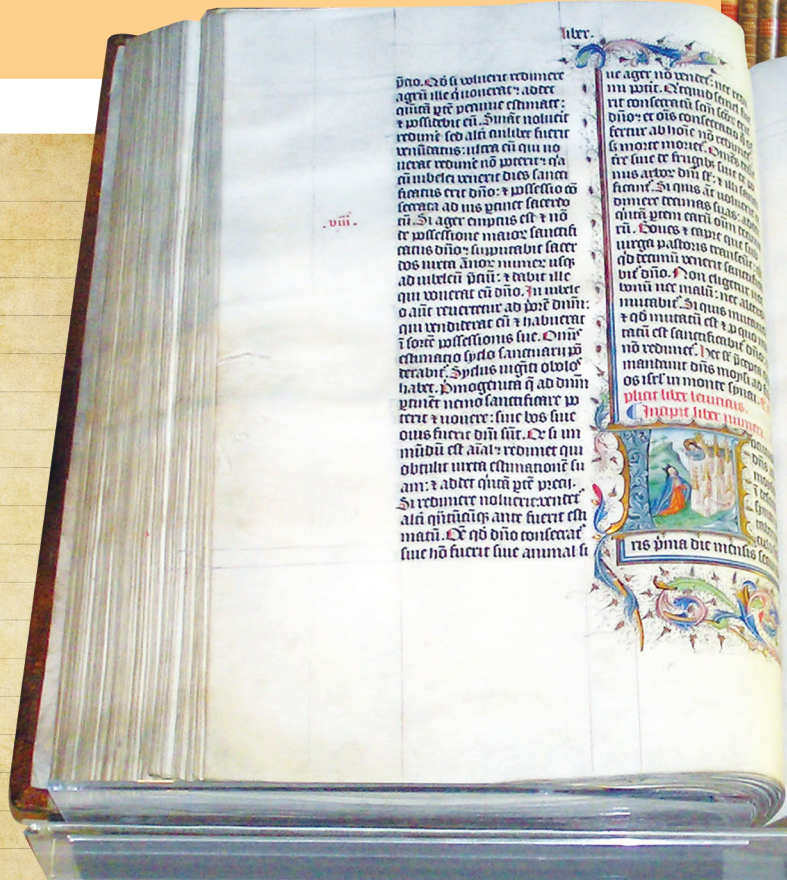 liber.
p̄cio. Qđ si voluerit redimere
agrū ille q̇ vouerat: addet
quītā ptē pecunie estimate:
⁊ possidebit eū. Sinaūt noluerit
redimē sed alti cuilibet fuerit
venūdatus: ultra eū qui uo
uerat redimē nō poterit: q̇a
cū iubelei venerit dies sancti
ficatus erit dn̄o: ⁊ possessio cō
secrata ad ius ptinet sacerdo
tū. Si ager emptus est ⁊ nō
de possessione maior sanctifi
catus dn̄o: supputabit sacer
dos iuxta ānor numer usq̨
ad iubeleū p̄ciū: ⁊ dabit ille
qui vouerat eū dn̄o. In iubele
o aūt reuertetur ad p̄orē dn̄m:
qui vendiderat eū ⁊ habuerat
ī sorte possessionis sue. Om̄is
estimatio syclo sanctuarii pō
derabit. Syclus uigīti obolos
habet. Pmogenita q̄ ad dnm
ptinēt nemo sanctificare po
terit ⁊ uouere: siue bos siue
ouis fuerit dn̄i sūt. Qđ si im
mūdū est aīal: redimet qui
obtulit iuxta estimationē su
am: ⁊ addet q̇ntā ptē precij.
Si redimere noluerit: vendet
alti q̄ntūcūq̨ ante fuerit esti
matū. Oē qđ dn̄o consecrat
siue hō fuerit siue animal si
.viii.
ue ager nō vendet: nec redi
mi potit. Quidquid semel fue
rit consecratū
dn̄o: et oīs consecratio q̄
fertur ab hoīe nō redimet
s; morte moriet. Omēs deci
me siue de frugib; siue de po
mis arbor dn̄i st̄: ⁊ illi sancti
ficant. Si quis aūt voluerit re
dimere decimas suas: addet
q̇ntā ptem earū
rū. Boues ⁊ capre que sub
uirga pastoris transeūt:
qđ decimū venerit sanctifica
bit dn̄o. Non eligetur nec
bonū nec malū: nec altero
mutabit. Si quis mutauit
⁊ qđ mutatū est ⁊ p quo mu
tatū est sanctificabit dn̄o: ⁊
nō redimet. Hec st̄ p̄cepta q̄
mandauit dn̄s moysi ad fili
os isrl̄ in monte synai. Ex
plicit liber leuiticus.
Incipit liber numeri
ris p̄ma die mensis